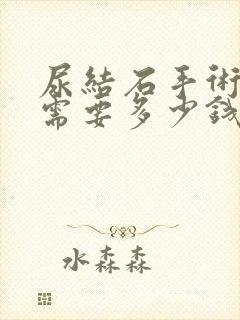 尿結石手術
需要多少錢
水森森